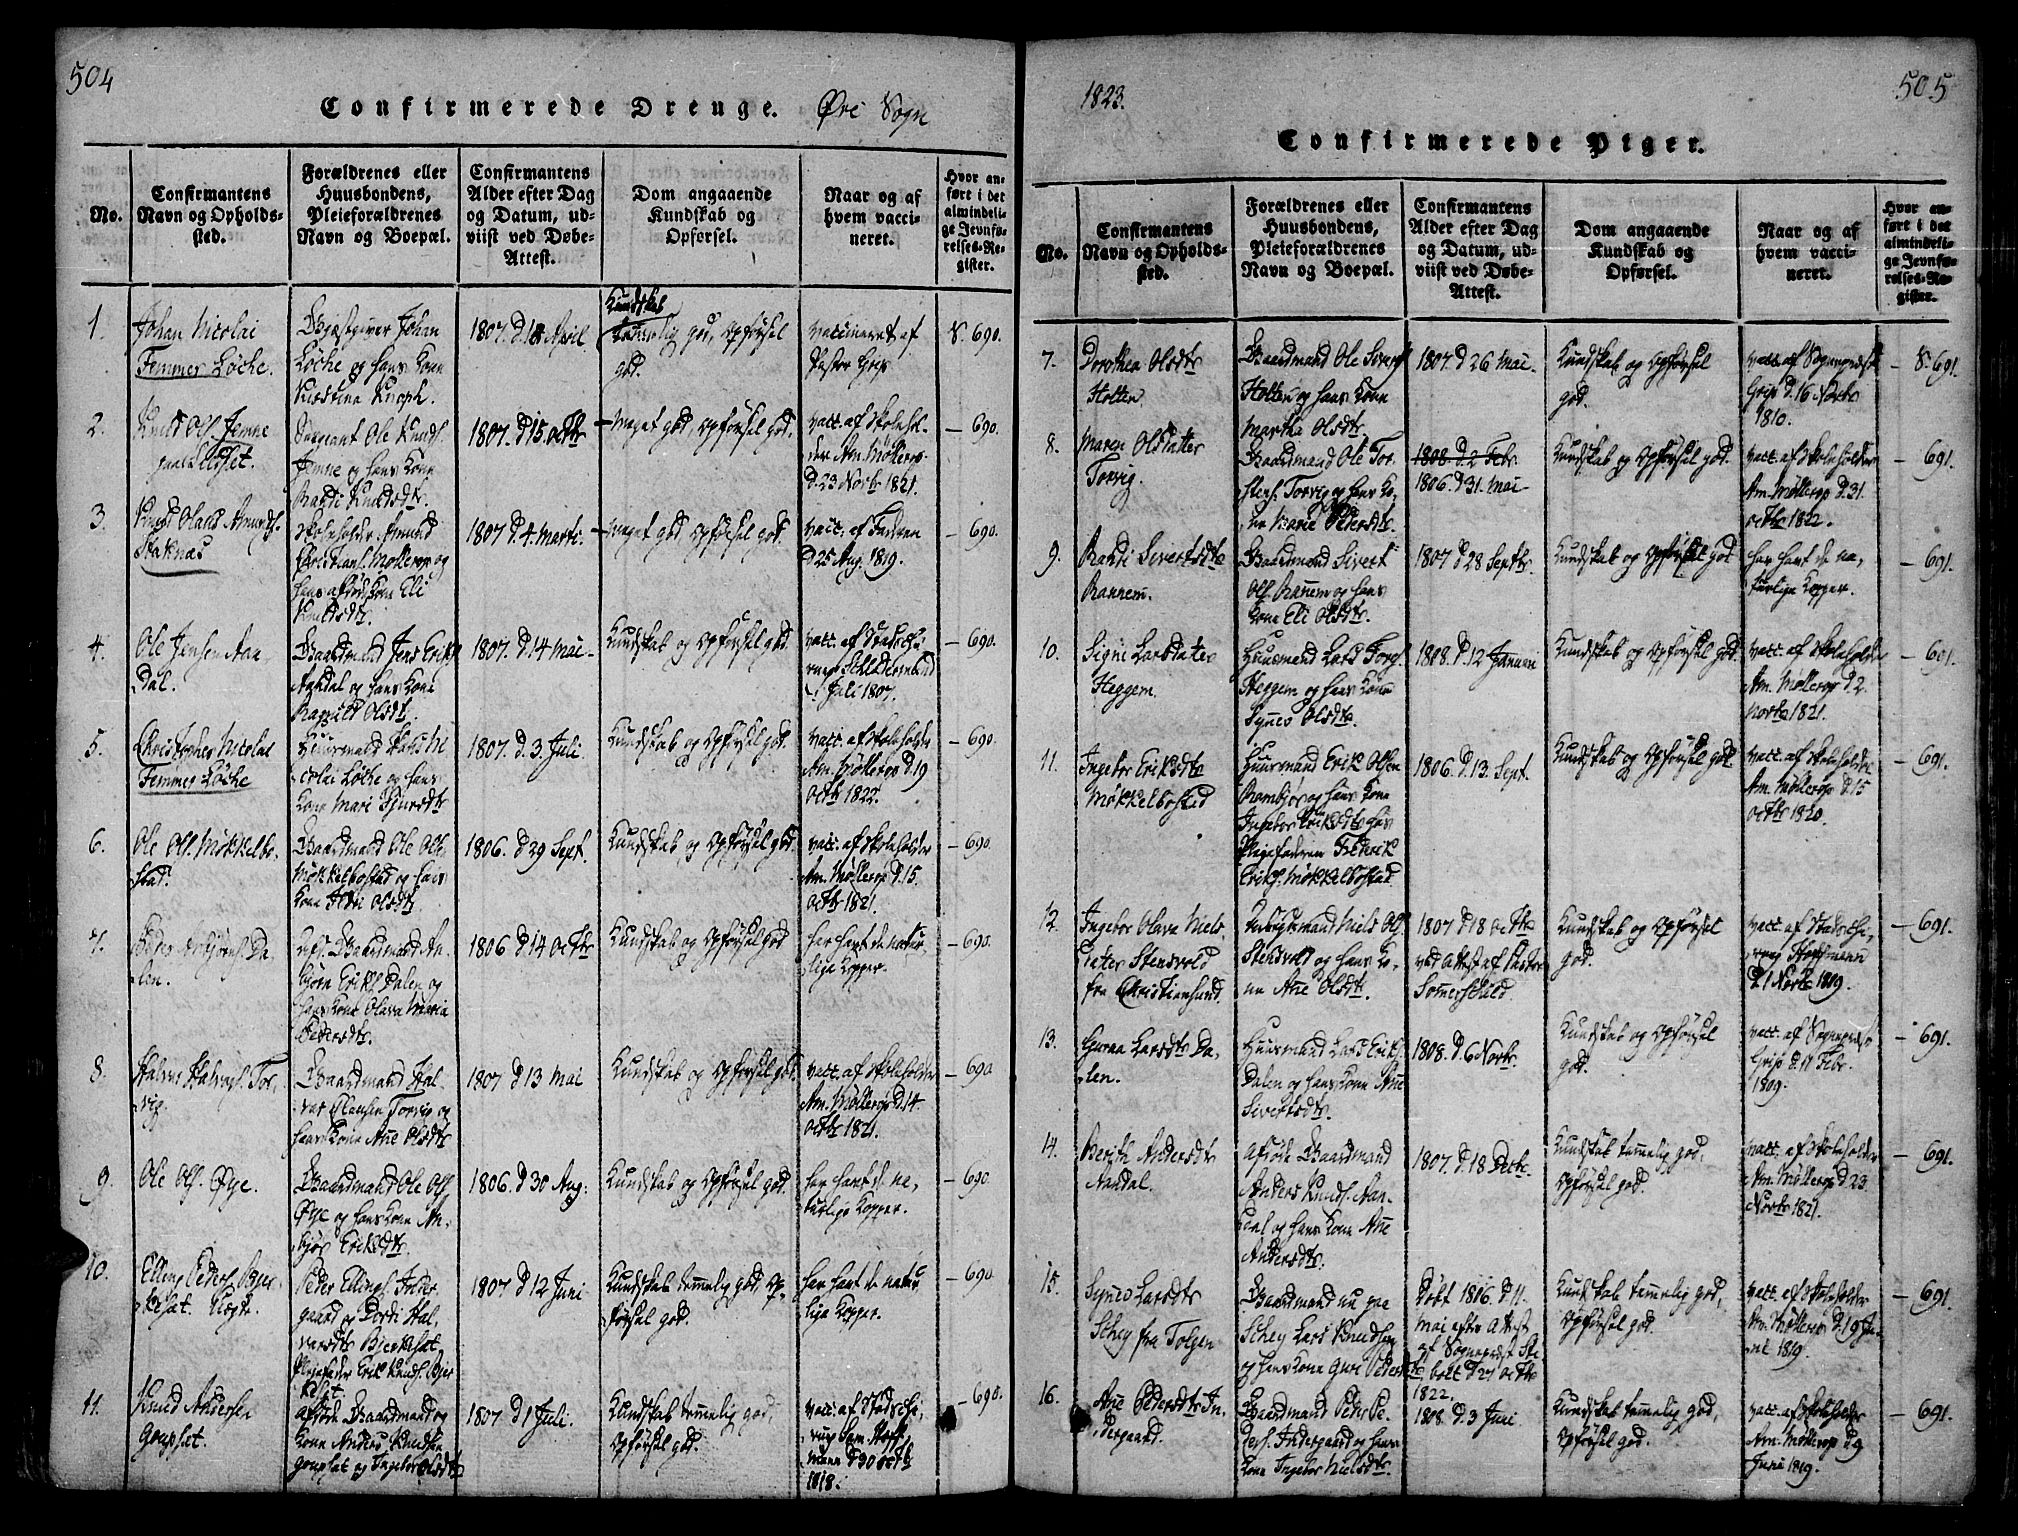 504
Confirmerede Drenge. Øre Sogn
No.
Confirmantens
Navn og Opholds-
sted.
Forældrenes eller
Huusbondens,
Pleieforældrenes
Navn og Boepæl.
Confirmantens
Alder efter Dag
og Datum, ud-
viist ved Døbe-
Attest.
Dom angaaende
Kundskab og
Opførsel.
Naar og af
hvem vacci-
neret.
Hvor an-
ført i det
almindeli-
ge Jevnfø-
relses-Re-
gister.
1.
Johan Nicolai
Femmer Løche.
Giestgiver Johan
Løche og hans Kone
Knoph.
1807. d. April.
Kundskab
god, Opførsel
god.
vaccineret af
Pastor Grip
S. 690.
2.
Knud Ols. Jemne
Sergeant Ole Knuds.
Jemne og hans Kone
Randi Knudsdtr.
1807. d. 15. octbr
meget god, Opførsel god.
vacc. af Skolehol-
der Am. Møllerop
d. 23 Novbr 1821.
- 690.
3.
Knud Olaus Amunds.
Staknæs
Skoleholder Amund
Christians. Møllerop og
hans afdøde Kone Eli
Knudsdtr.
1807 d. 4. Marts.
meget god Opførsel god.
vacc. af
d. 25 Aug. 1819.
- 690.
4.
Ole Jensen Aan-
dal.
Gaardmand Jens Eriks.
Aandal og hans Kone
Ragnild Olsdtr.
1807. d. 14 Mai
Kundskab og Opførsel god.
vacc. af Stadschi-
rurg
Juli 1807.
- 690.
5.
Christopher Nicolai
Femmer Løche
Huusmand
colai Løche og hans
Kone Mari Siursdtr
1807. d. 3. Juli
Kundskab og Opførsel god.
vacc. af Skoleholder
Am. Møllerop d. 19
octbr 1822.
- 690.
6.
Ole Ols. Møkkelbo-
stad.
Gaardmand Ole Ols.
Møkkelbostad og hans
Kone Olsdtr.
1806. d. 29 Sept.
Kundskab og Opførsel god.
vacc. af Skoleholder
Am. Møllerop d. 15.
octbr 1821.
- 690.
7.
Peder Anbjørns. Da-
len.
Gaardmand An-
bjørn Eriks. Dalen og
hans Kone Olava Maria
Pedersdtr.
1806 d. 14 octbr
Kundskab og Opførsel god
har havt de natur-
lige Kopper.
- 690.
8.
Halvor Halvors. Tor-
vig.
Gaardmand Hal-
vor Clausen Torvig og
hans Kone Ane Olsdtr
1807 d. 13 Mai
Kundskab og Opførsel god
vacc. af Skoleholder
Am. Møllerop d. 14.
octbr 1821.
- 690
9.
Ole Ols. Øye.
Gaardmand Ole Ols.
Øye og hans Kone An-
bjør Eriksdtr.
1806. d. 30 Aug:
Kundskab og Opførsel god.
har havt de na-
turlige Kopper.
- 690
10.
Elling Peders. Bjer-
keset.
Peder Ellings. Inder-
gaard og Berdi Hal-
varsdtr Bjerkeset.
Pleiefader Erik Knuds. Bjer
keset.
1807 d. 12 Juni
Kundskab temmelig god, Op-
førsel god.
har havt de natur
lige Kopper.
- 690
11.
Knud Andersen
Goupset.
afdøde Gaardmand og
Kone Anders Knudsen
Goupset og Ingebor Olsdtr
1807. d. 1 Juli.
Kundskab temmelig god,
Opførsel god.
vacc. af Stadschi-
rurg Sam. Hoff-
mann d. 30 octbr
1818.
- 690.
1823.
505
Confirmerede Piger.
No.
Confirmantens
Navn og Opholds-
sted.
Forældrenes eller
Huusbondens,
Pleieforældrenes
Navn og Boepæl.
Confirmantens
Alder efter Dag
og Datum, ud-
viist ved Døbe-
Attest.
Dom angaaende
Kundskab og
Opførsel.
Naar og af
hvem vacci-
neret.
Hvor an-
ført i det
almindeli-
ge Jevnfø-
relses-Re-
gister.
7.
Dorothea Olsdtr
Holten.
Gaardmand Ole Sivers.
Holten og hans Kone
Martha Olsdtr.
1807 d. 26 Mai.
Kundskab og Opførsel
god.
vacc. af Sognepræst
Grip d. 16 Novbr
1810.
- S. 691.
8.
Maren Olsdatter
Torvig.
Gaardmand Ole Tor-
stens. Torvig og hans Ko-
ne Marie Pedersdtr.
1808. d. 2 Febr.
1806. d. 31. Mai
Kundskab og Opførsel god.
vacc. af Skoleholder
Am. Møllerop d. 31.
octbr 1822.
- 691.
9.
Randi Sivertsdtr
Rannem.
Gaardmand Sivert
Ols. Rannem og hans
Kone Eli Olsdtr.
1807 d. 28 Septbr.
Kundskab og Opførsel god
har havt de na-
turlige Kopper.
- 691.
10.
Signi Larsdatter
Heggem.
Huusmand Lars Tors.
Heggem og hans Kone
Synev Olsdtr.
1808. d. 12 Januari
Kundskab og Opførsel god.
vacc. af Skoleholder
Am. Møllerop d. 2.
Novbr 1821.
- 691.
11.
Ingebor Eriksdtr
Møkkelbostad
Huusmand Erik Olsen
Rambjør og hans Kone
Ingebor Eriksdtr hos
Pleiefaderen Frederik
Eriks. Møkkelbostad.
1806. d. 13. Sept.
Kundskab og Opførsel god.
vacc. af Skoleholder
Am. Møllerop d. 15
octbr 1820.
- 691.
12.
Ingebor Olava Niels-
datter Stensvold
fra Christiansund.
Niels Ols.
Stensvold og hans Ko-
ne Ane Olsdtr.
1807 d. 18 octbr
ved Attest af Pastor
Sommerschild.
Kundskab og Opførsel
god.
vacc. af Stadschi-
rurg Hoffmann
d. 1 Novbr 1819.
- 691.
13.
Guraa Larsdtr Da-
len.
Huusmand Lars Eriks.
Dalen og hans Kone Ane
Sivertsdtr.
1808. d. 6 Novbr.
Kundskab og Opførsel
god.
vacc. af Sognepræst
Grip d. 11 Febr.
1809.
- 691.
14.
Berith Andersdtr
Aandal.
Afdøde Gaardmand
Anders Knuds. Aan-
dal og hans Kone Ane
Andersdtr.
1807. d. 18 Decbr.
Kundskab temmelig god,
Opførsel god.
vacc. af Skoleholder
Am. Møllerop d. 23
Novbr 1821.
- 691.
15.
Synev Larsdtr
Schey fra Tolgen
Gaardmand nu paa
Schey Lars Knudsen
og hans Kone Guri Pedersdtr
Døbt 1806. d. 11.
Mai efter Attest
af Sognepræst Ste-
bolt d. 27 octbr
1822.
Kundskab temmelig god,
Opførsel god.
vacc. af Skoleholder
Am. Møllerop d. 19 Ju-
ni 1819.
- 691.
16.
Ane Pedersdtr In-
dergaard.
Gaardmand Peder Pe-
ders. Indergaard og hans
Kone Ingebor Nielsdtr.
1808. d. 3 Juni
Kundskab temmelig god,
Opførsel god.
vacc. af Skoleholder
Am. Møllerop d. 9
Juni 1819.
- 691.